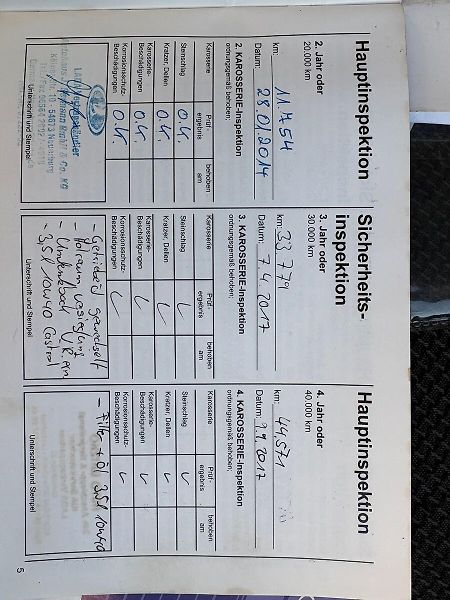 Hauptinspektion
2. Jahr oder
20.000 km
km: 11.754
Datum: 28.01.2014
2. KAROSSERIE-Inspektion
ordnungsgemäß behoben:
Karosserie Prüf-ergebnis behoben am
Steinschlag O.K.
Kratzer, Dellen O.K.
Karosserie-Beschädigungen O.K.
Korrosionsschutz-Beschädigungen O.K.
Unterschrift und Stempel
Sicherheits-
inspektion
3. Jahr oder
30.000 km
km: 33.779
Datum: 7.4.2017
3. KAROSSERIE-Inspektion
ordnungsgemäß behoben:
Karosserie Prüf-ergebnis behoben am
Steinschlag
Kratzer, Dellen
Karosserie-Beschädigungen
Korrosionsschutz-Beschädigungen
- 3,5l 10W40 Castrol
Unterschrift und Stempel
Hauptinspektion
4. Jahr oder
40.000 km
km: 44.571
Datum: 9.9.2017
4. KAROSSERIE-Inspektion
ordnungsgemäß behoben:
Karosserie Prüf-ergebnis behoben am
Steinschlag
Kratzer, Dellen
Karosserie-Beschädigungen
Korrosionsschutz-Beschädigungen
- Filter + Öl 3,5l 10W40
Unterschrift und Stempel
5